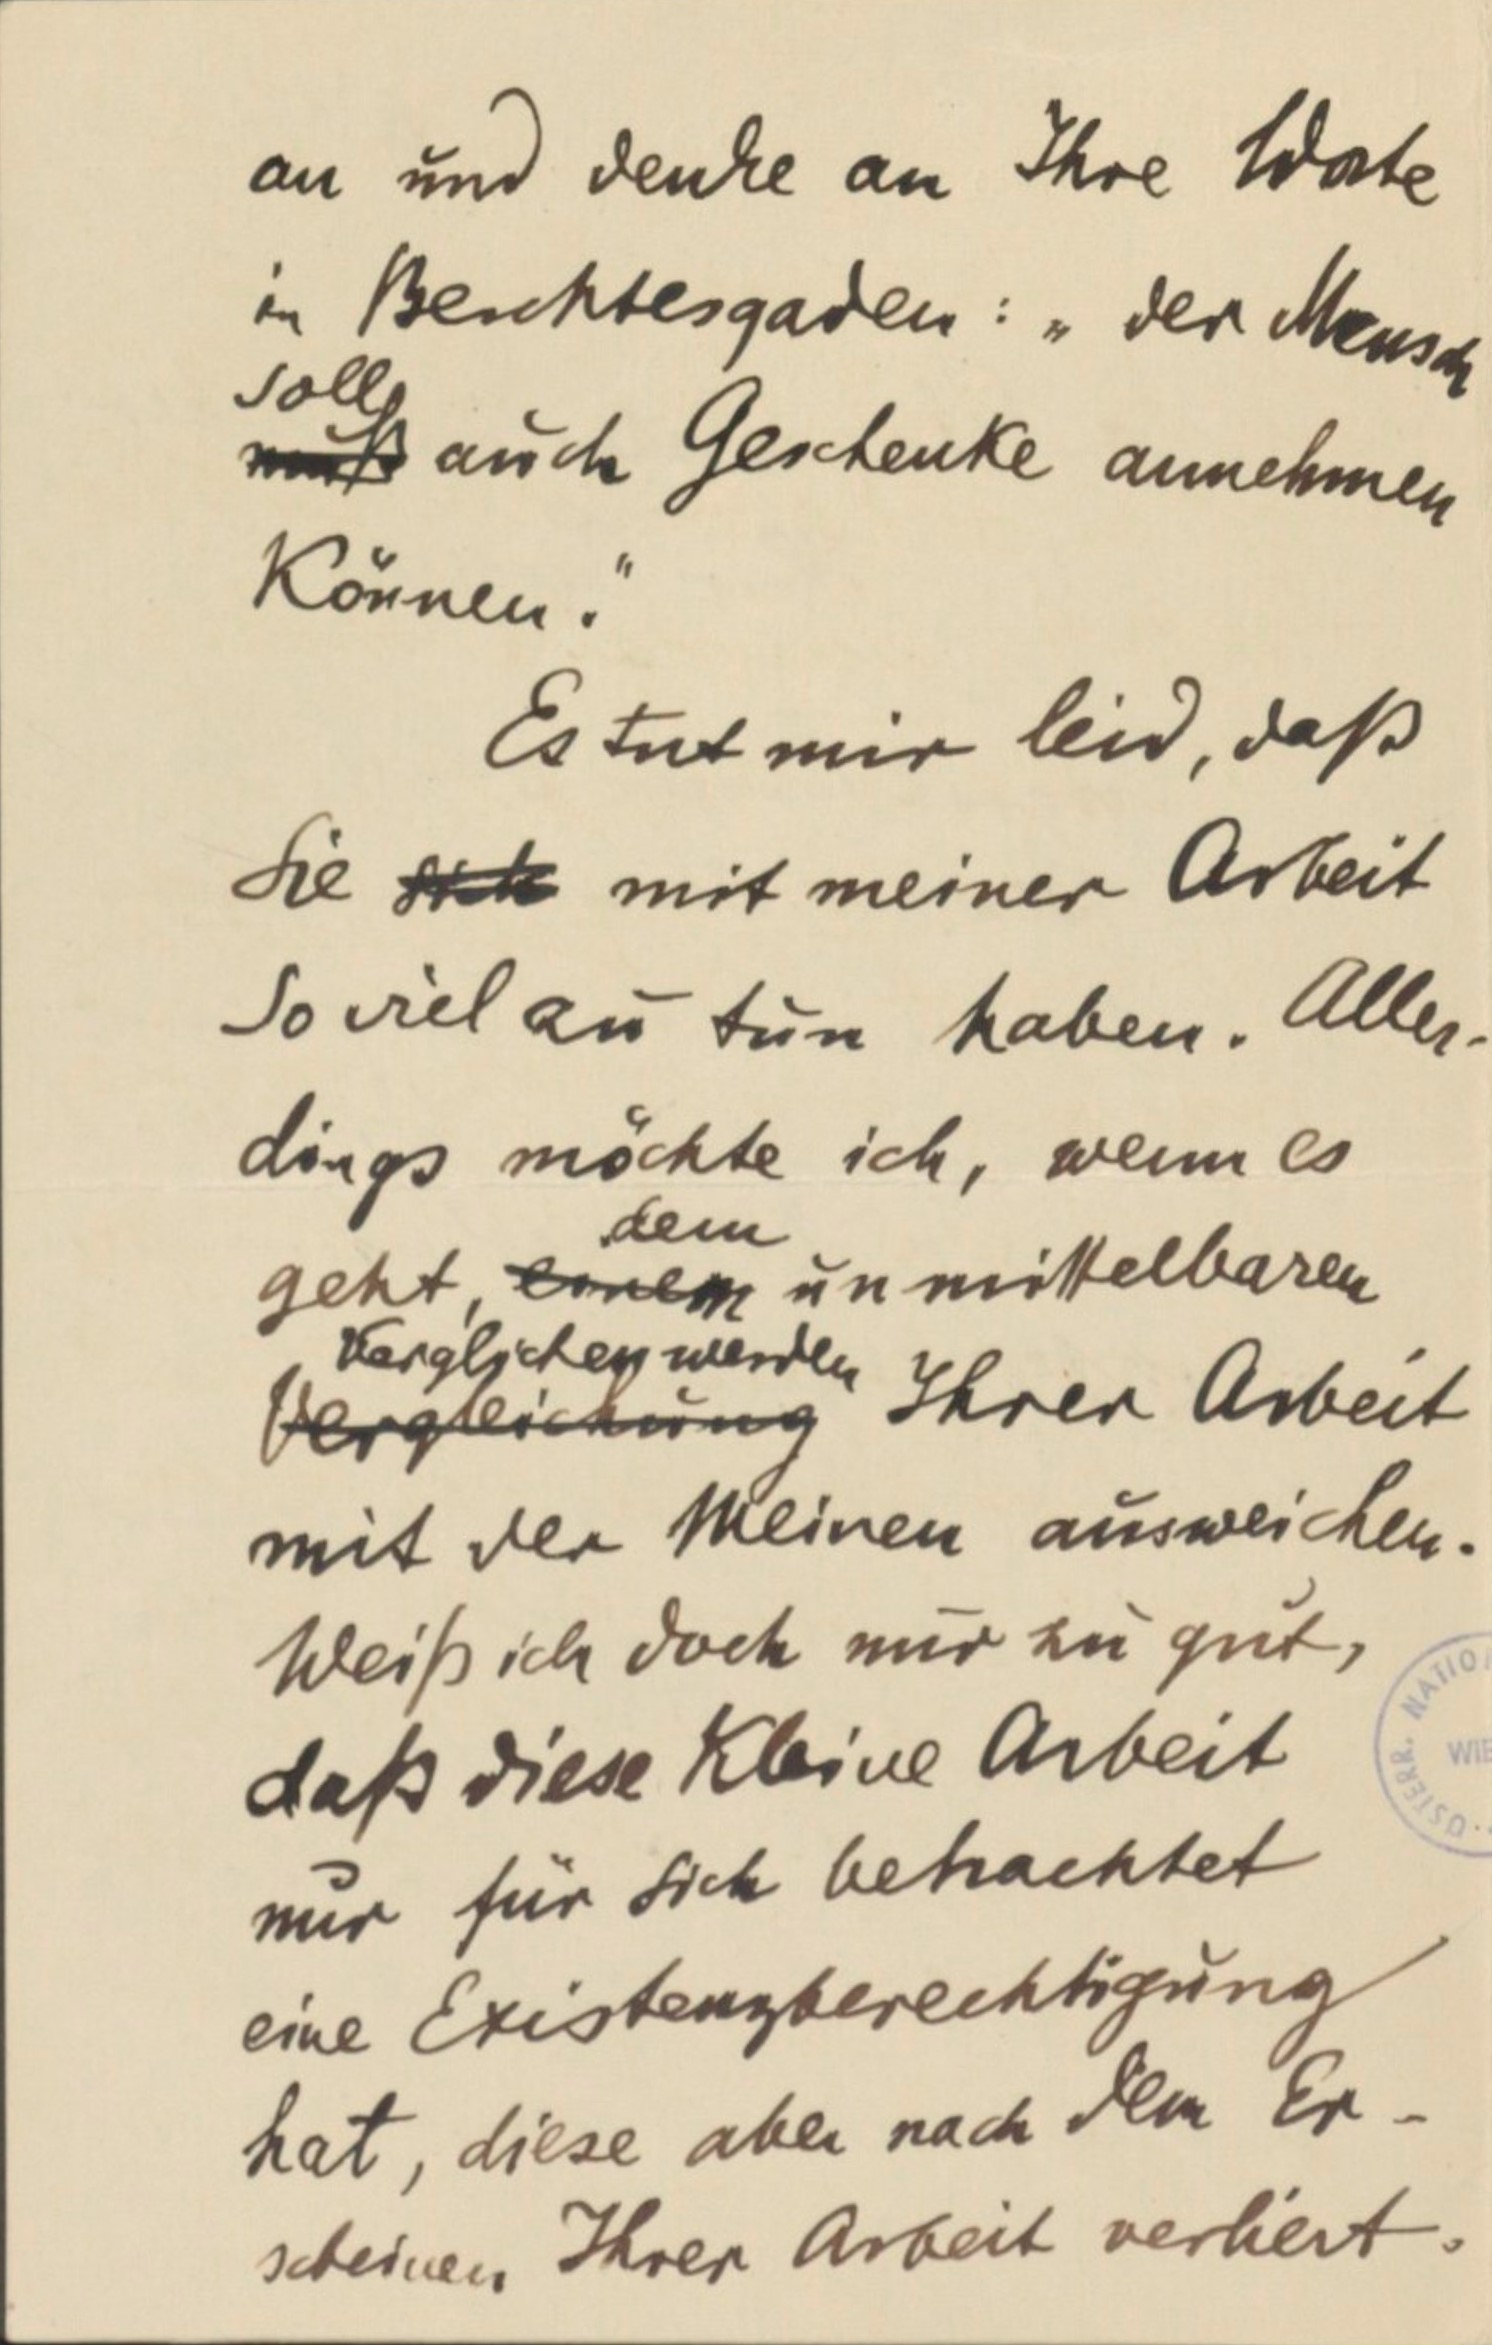 an und denke an Ihre Worte
in Berchtesgaden: „der Mensch
soll
muß auch Geschenke annehmen
Können."
Es tut mir leid, daß
Sie sich mit meiner Arbeit
so viel zu tun haben. Aller-
dings möchte ich, wenn es
dem
geht, einem unmittelbaren
Verglichen werden
Vergleichung Ihrer Arbeit
mit der Meinen ausweichen.
Weiß ich doch nur zu gut,
daß diese Kleine Arbeit
nur für sich betrachtet
eine Existenzberechtigung
hat, diese aber nach dem Er-
scheinen Ihrer Arbeit verliert.
ÖSTERR. NATIO
WIE